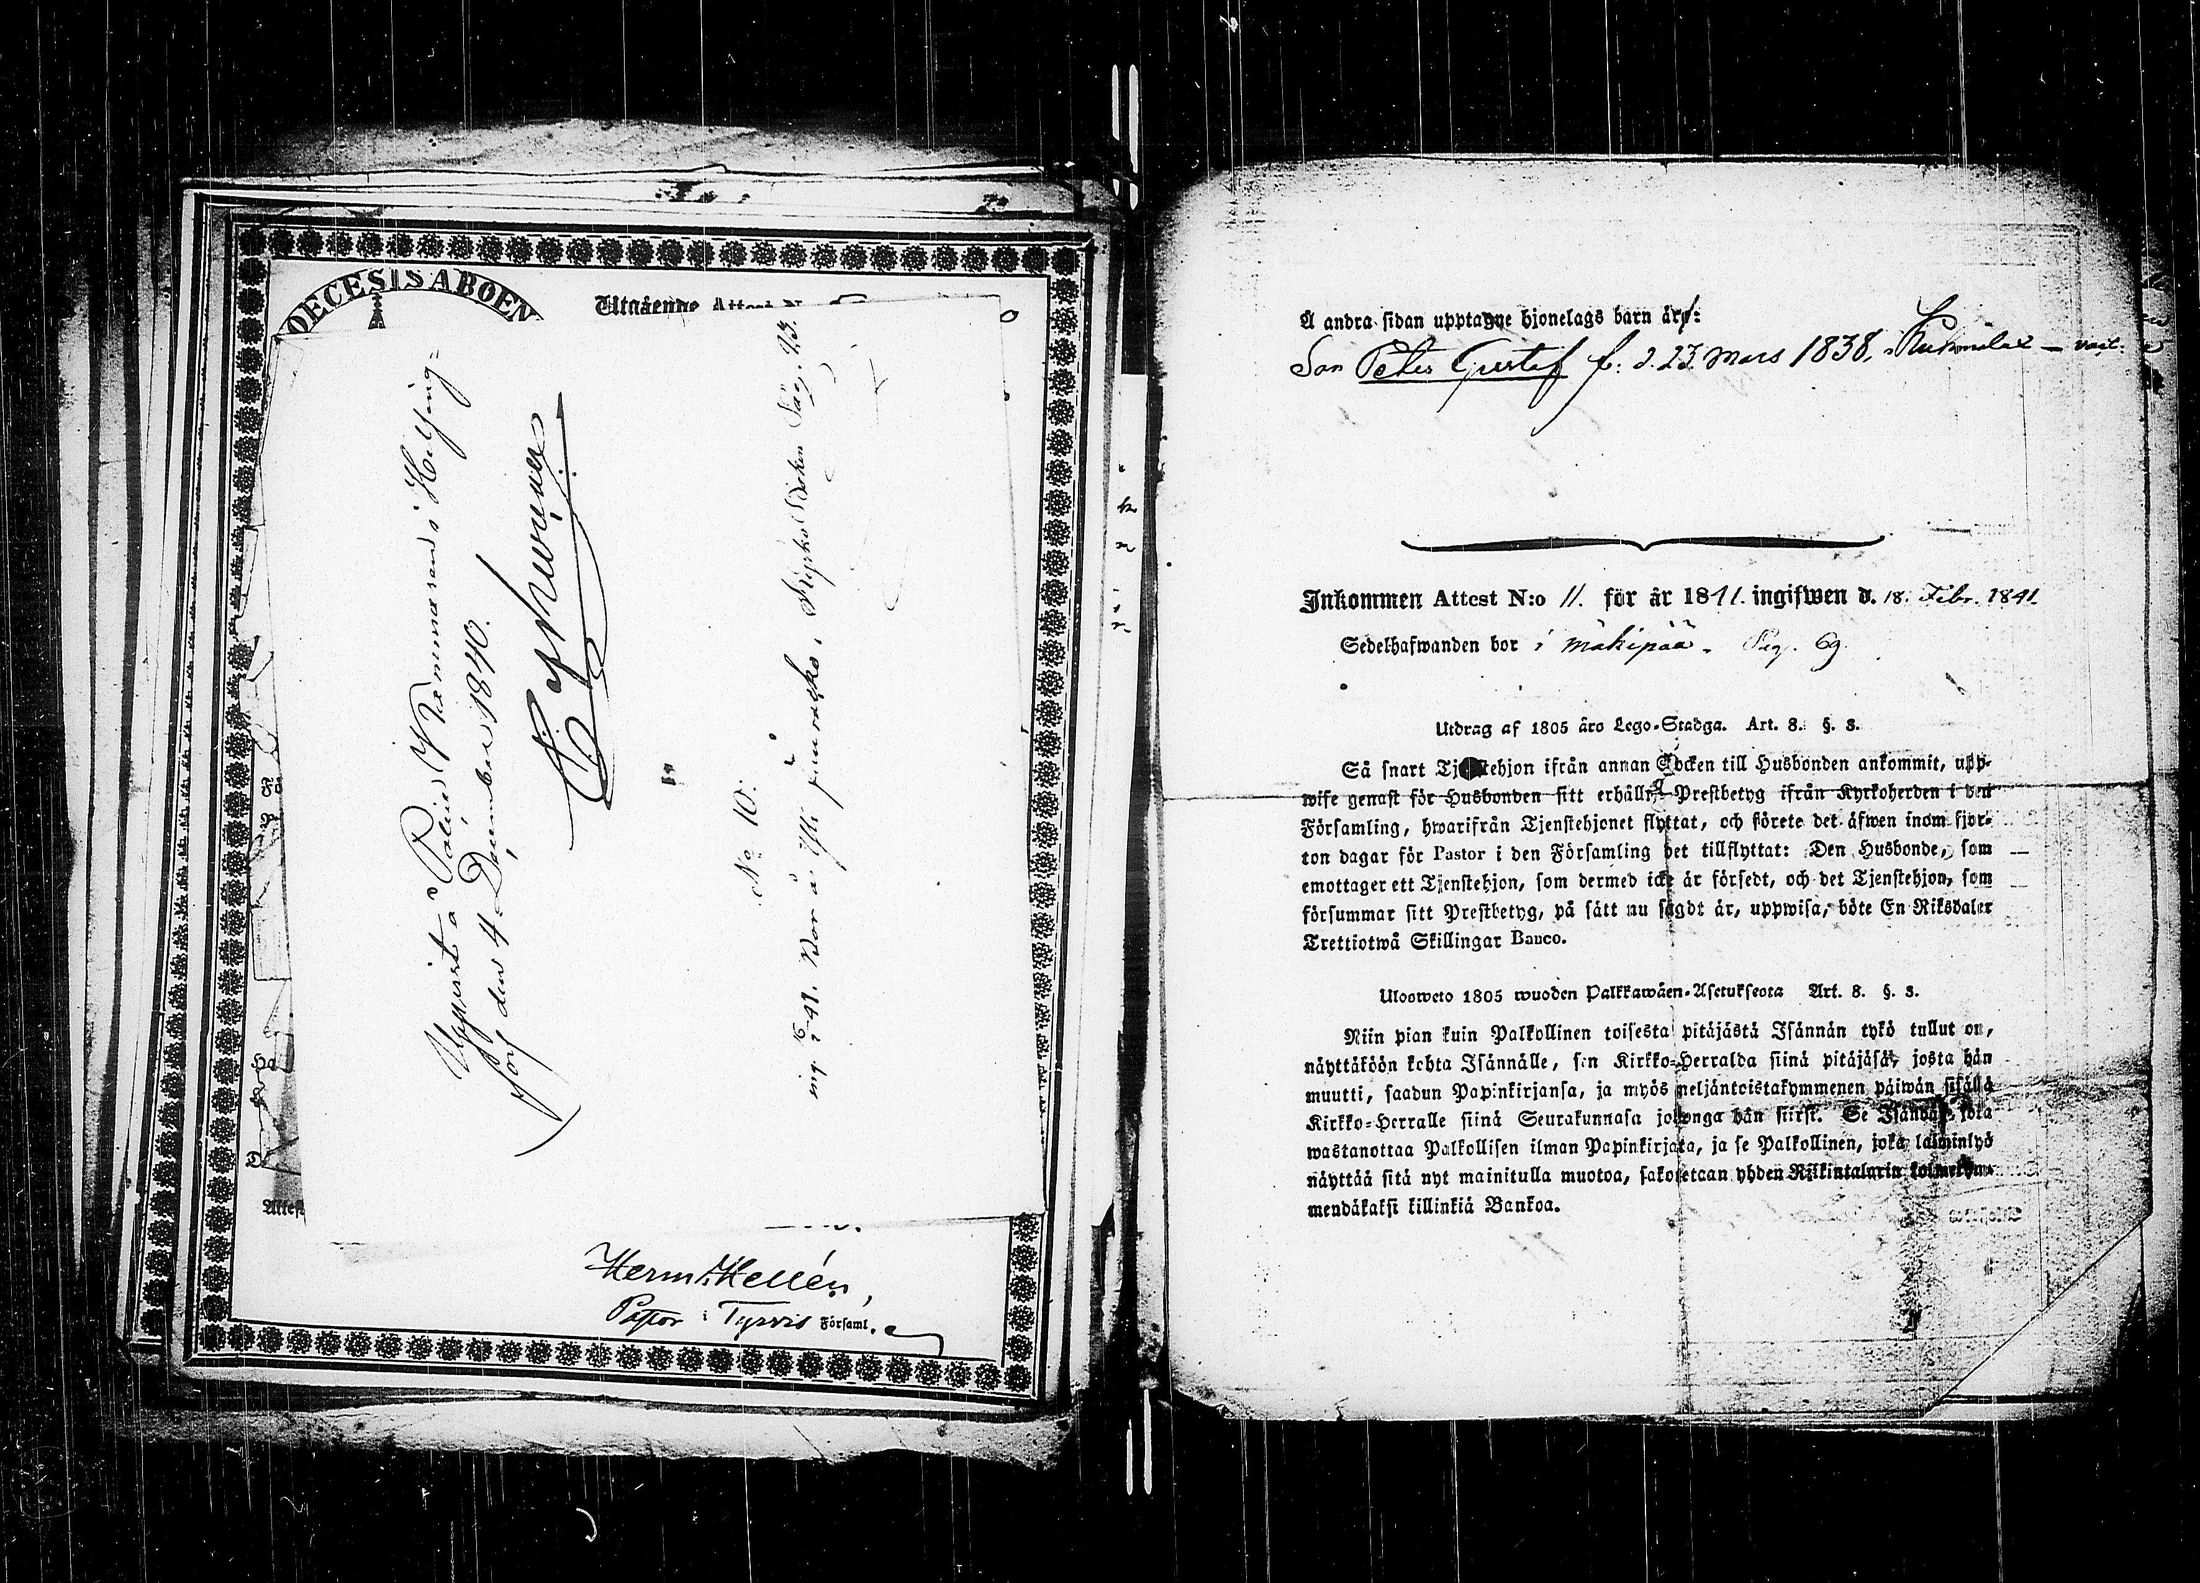 OECESIS ABOEN
Utgående Attest N
Uppvist å Polisen i Helsing=
fors, den 4 December 1840.
No 10.
Attest
Herm. Hellén,
Pastor i Tyrvis Församl.
Å andra sidan upptagne hjonelags barn äro:
Son Peter Gustaf f: d. 23 Mars 1838,
Inkommen Attest N:o 11. för år 1841. ingifwen d. 18. Febr. 1841.
Sedelhafwanden bor i Mäkipää. Pag. 69.
Utdrag af 1805 års Lego-Stadga. Art. 8. §. 3.
Så snart Tjenstehjon ifrån annan Socken till Husbonden ankommit, upp-
wise genast för Husbonden sitt erhållna Prestbetyg ifrån Kyrkoherden i den
Församling, hwarifrån Tjenstehjonet flyttat, och förete det äfwen inom fjor-
ton dagar för Pastor i den Församling det tillflyttat: Den Husbonde, som
emottager ett Tjenstehjon, som dermed icke är försedt, och det Tjenstehjon, som
försummar sitt Prestbetyg, på sätt nu sagdt är, uppwisa, böte En Riksdaler
Trettiotwå Skillingar Banco.
Uloswето 1805 wuoden Palkkawäen-Asetuksesta Art. 8. §. 3.
Niin pian kuin Palkollinen toisesta pitäjästä Isännän tykö tullut on,
näyttäköön kohta Isännälle, sen Kirkko-Herralda siinä pitäjäsä, josta hän
muutti, saadun Papinkirjansa, ja myös neljäntoistakymmenen päiwän sisällä
Kirkko-Herralle siinä Seurakunnasa johonga hän siirsi. Se Isändä, joka
wastanottaa Palkollisen ilman Papinkirjata, ja se Palkollinen, joka laiminlyö
näyttää sitä nyt mainitulla muotoa, sakotetaan yhden Riikintalarin kolmekym-
mendäkaksi killinkiä Bankoa.